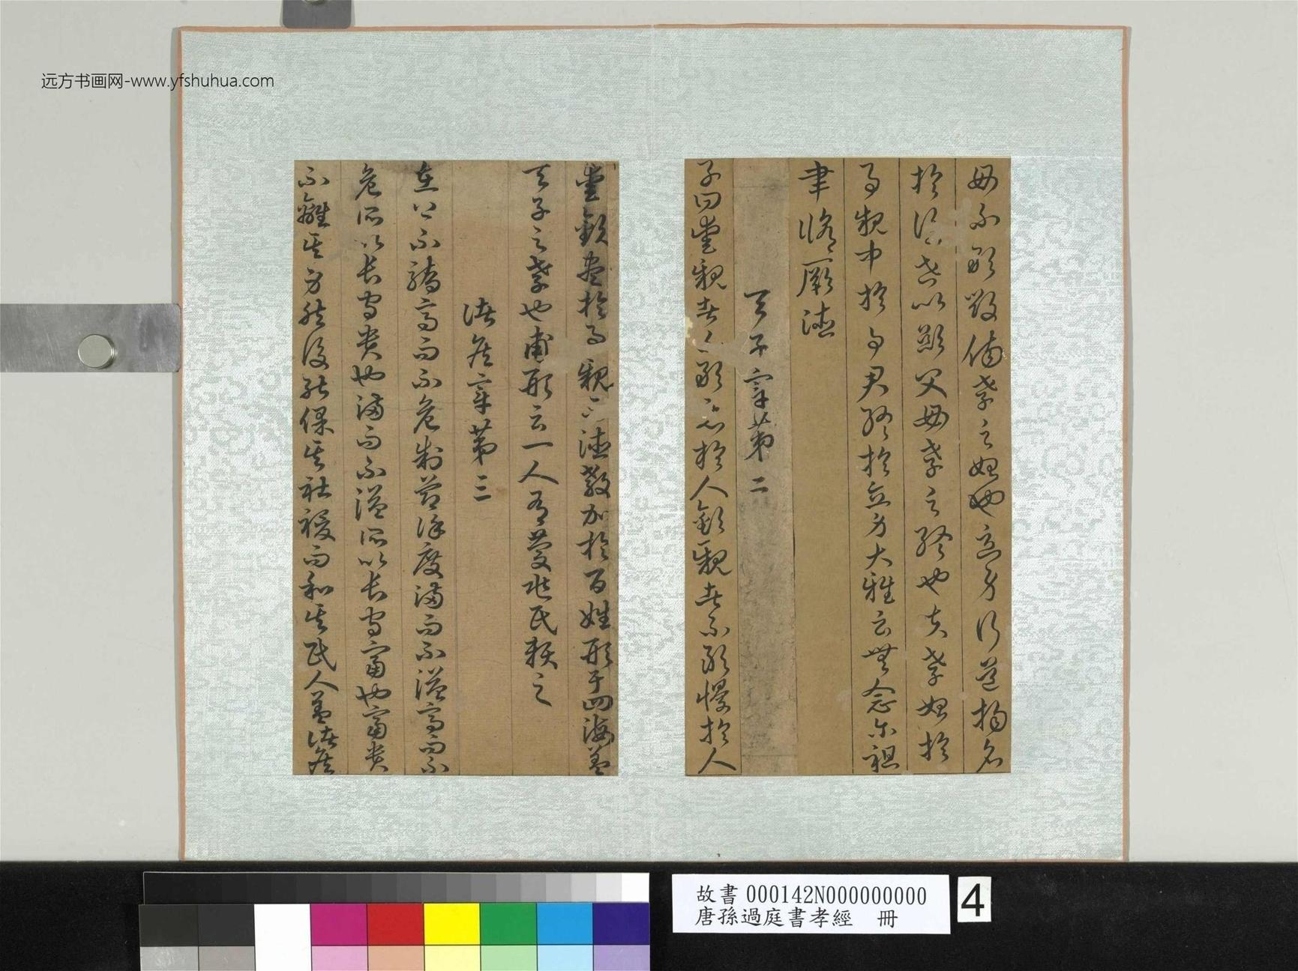 远方书画网-www.yfshuhua.com
毋不敢毀傷孝之始也立身行道揚名
於後世以顯父母孝之終也夫孝始於
事親中於事君終於立身大雅云無念尔祖
聿脩厥德
天子章第二
子曰愛親者不敢惡於人敬親者不敢慢於人
愛敬盡於事親而德教加於百姓形于四海蓋
天子之孝也甫刑云一人有慶兆民賴之
諸侯章第三
在上不驕高而不危制節謹度滿而不溢高而不
危所以長守貴也滿而不溢所以長守富也富貴
不離其身然後能保其社稷而和其民人蓋諸侯
故書 000142N000000000
唐孫過庭書孝經 冊
4